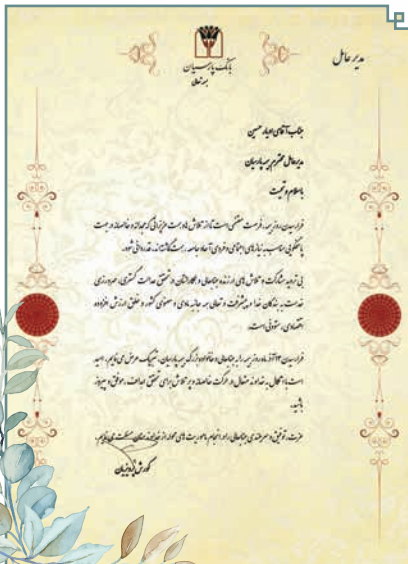 مدیر عامل
بانک پارسیان
بسمه تعالی
جناب آقای هادیار حسین
مدیرعامل محترم بیمه پارسیان
با سلام و تحیت
فرارسیدن روز بیمه، فرصت مغتنمی است تا از تلاش ها و همت عزیزانی که مجدانه و خالصانه در جهت
پاسخگویی مناسب به نیازهای اجتماعی و فردی آحاد جامعه، همت گماشته‌اند، قدردانی شود.
بی تردید مشارکت و تلاش های ارزنده جنابعالی و همکارانتان در تحقق عدالت گستری، مهرورزی
خدمت به بندگان خدا و پیشرفت و تعالی همه جانبه مادی و معنوی کشور و خلق ارزش افزوده
اقتصادی، ستودنی است.
فرارسیدن ۱۳ آذر ماه روز بیمه را به جنابعالی و خانواده بزرگ بیمه پارسیان، تبریک عرض می نمایم، امید
است با اتکال به خداوند متعال در حرکت خالصانه و پر تلاش برای تحقق اهداف، موفق و پیروز
باشید.
عزت، توفیق و سربلندی جنابعالی را در انجام ماموریت های محوله از خداوند منان مسئلت می نمایم.
کورش پرویزیان